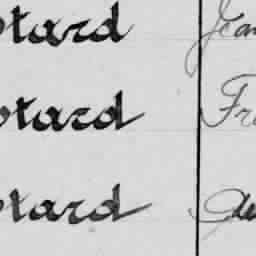 otard Jean
otard Fr
otard